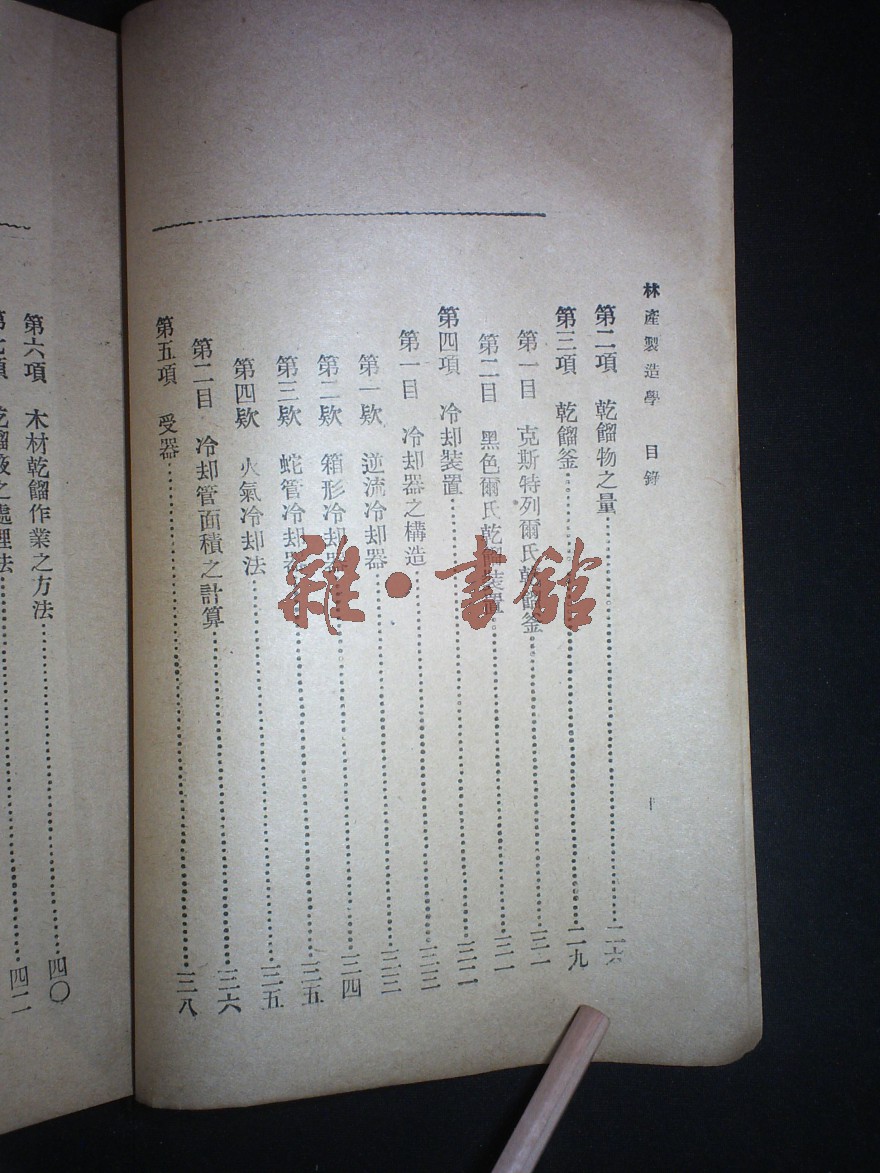 林產製造學 目錄
第二項 乾餾物之量……二六
第三項 乾餾釜……二九
第一目 克斯特列爾氏乾餾釜……三一
第二目 黑色爾氏乾餾裝置……三一
第四項 冷却裝置……三二
第一目 冷却器之構造……三三
第一欵 逆流冷却器……三三
第二欵 箱形冷却器……三四
第三欵 蛇管冷却器……三五
第四欵 火氣冷却法……三五
第二目 冷却管面積之計算……三六
第五項 受器……三八
第六項 木材乾餾作業之方法……四〇
第七項 乾餾液之處理法……四二
雜·書館